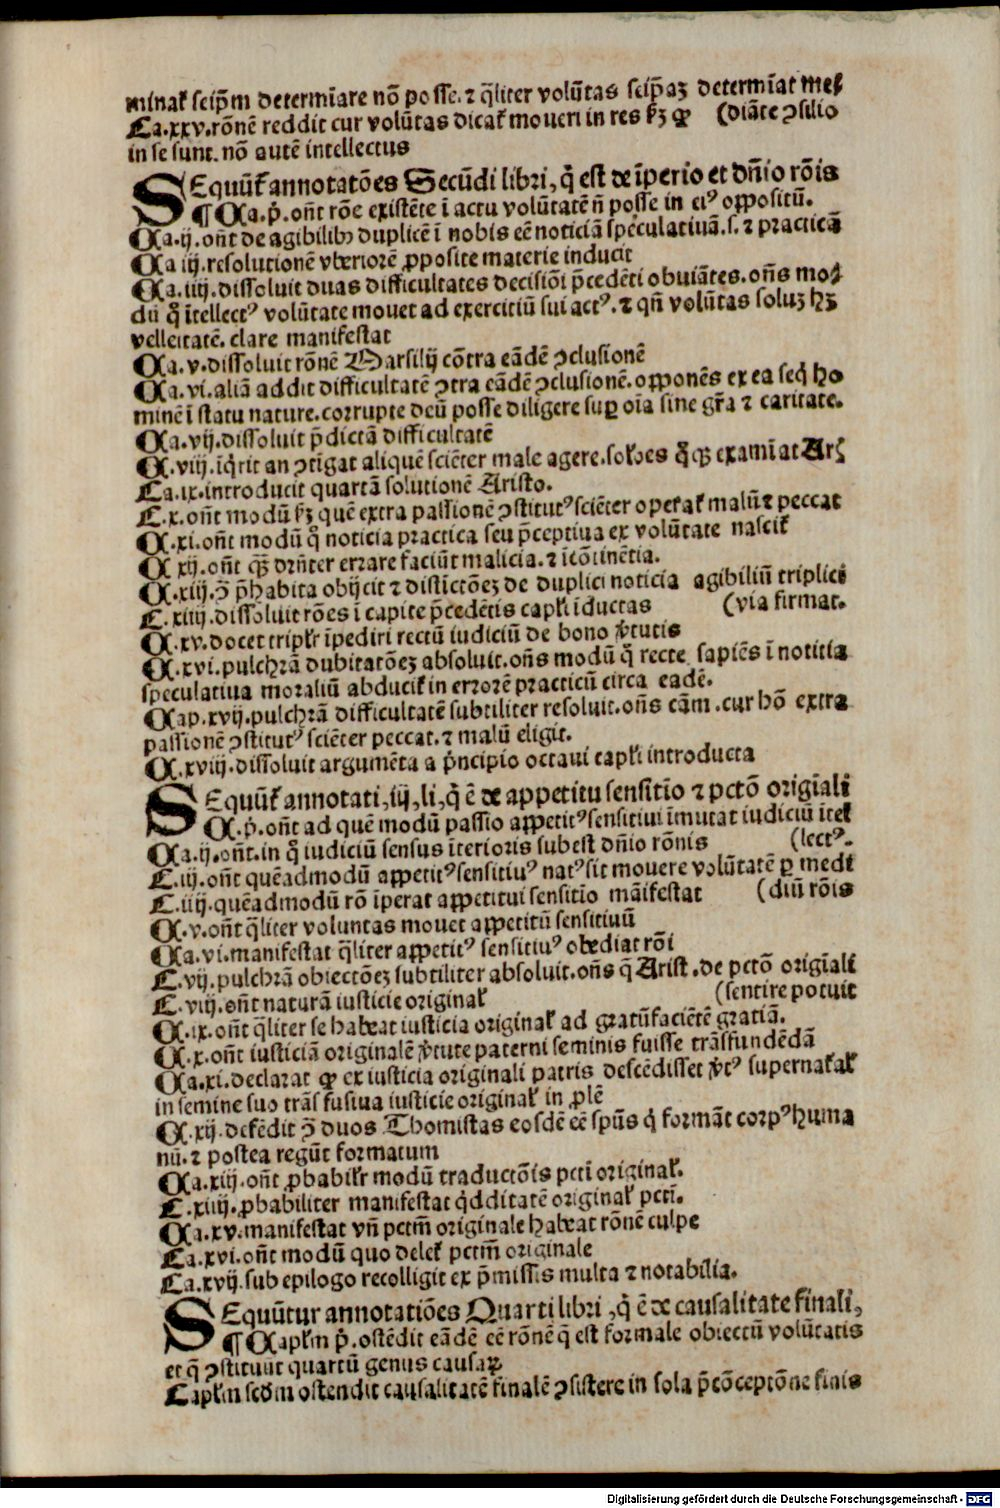 minat᷑ seip̄m determīare nō posse. ⁊ q̄liter volūtas seip̄aꝫ determīat meſ
Ca.xxv.rōnē reddit cur volūtas dicat᷑ moueri in res ẜꝫ ꝙ (diāte ꝯsilio
in se sunt. nō autē intellectus
SEquūt᷑ annotatōes Secūdi libri, q̄ est de īperio et dn̄io rōis
¶ Ca.p̄. on̄t rōe existēte ī actu volūtatē n̄ posse in eiꝰ oꝓpositū.
Ca.ij. on̄t de agibilibꝫ duplicē ī nobis eē noticiā speculatiuā.s. ⁊ practicā
Ca iij. resolutionē vberiorē ꝓposite materie inducit
Ca.iiij. dissoluit duas difficultates decisiōi p̄cedēti obuiātes. on̄s mo⸗
dū q̊ ītellectꝰ volūtate mouet ad exercitiū sui actꝰ. ⁊ qn̄ volūtas soluꝫ hꝫ
velleitatē. clare manifestat
Ca.v. dissoluit rōnē Marsilij cōtra eādē ꝯclusionē
Ca.vi. aliā addit difficultatē ꝯtra eādē ꝯclusionē. oꝓponēs ex ea seq̇ ho
minē ī statu nature. corrupte deū posse diligere suꝑ oīa sine gr̄a ⁊ caritate.
Ca.vij. dissoluit p̄dictā difficultatē
C.viij. īq̇rit an ꝯtīgat aliquē sciēter male agere. solꝰ́oes q̊ꝗ examīat Arꝭ
Ca.ix. introducit quartā solutionē Aristo.
C.x. on̄t modū ẜꝫ quē extra passionē ꝯstitutꝰ sciēter operat᷑ malū ⁊ peccat
C.xi. on̄t modū q̊ noticia practica seu p̄ceptiua ex volūtate nascit᷑
C xij. on̄t qꝫ drn̄ter errare faciūt malicia. ⁊ īcōtinētia.
C.xiij. ꝯ̄ p̄habita obijcit ⁊ distīctōeꝫ de duplici noticia agibiliū triplici
C.xiiij. dissoluit rōes ī capite p̄cedētis capł'i iductas (via firmat.
C.xv. docet tripłr īpediri rectū iudiciū de bono v̄tutis
C.xvi. pulchrā dubitatōeꝫ absoluit. on̄s modū q̊ recte sapiēs ī notitia
speculatiua moraliū abducit᷑ in errorē practicū circa eadē.
Cap.xvij. pulchrā difficultatē subtiliter resoluit. on̄s cām. cur hō extra
passionē ꝯstitutꝰ sciēter peccat. ⁊ malū eligit.
C.xviij. dissoluit argumēta a p̄ncipio octaui capł'i introducta
SEquūt᷑ annotati, iij, li, q̄ ē de appetitu sensitīo ⁊ pctō origīali
C.p̄. on̄t ad quē modū passio aꝓpetitꝰ sensitiui īmutat iudiciū ītel
Ca.ij. on̄t. in q̊ iudiciū sensus īterioris subest dn̄io rōnis (lectꝰ.
C.iij. on̄t quēadmodū appetitꝰ sensitiuꝰ natꝰ sit mouere volūtatē ꝑ medī
C.iiij. quēadmodū rō īperat appetitui sensitīo māifestat (diū rōis
C.v. on̄t q̄liter voluntas mouet appetitū sensitiuū
Ca.vi. manifestat q̄liter appetitꝰ sensitiuꝰ obediat rōi
C.vij. pulchrā obiectōeꝫ subtiliter absoluit. on̄s q̄ Arist. de pctō origīali
C.viij. on̄t naturā iusticie original᷑ (sentire potuit
C.ix. on̄t q̄liter se habeat iusticia original᷑ ad gratūfaciētē gratiā.
C.x. on̄t iusticiā originalē v̄tute paterni seminis fuisse trāsfundēdā
Ca.xi. declarat ꝙ ex iusticia originali patris descēdisset v̄tꝰ supernatałʼ
in semine suo trāsfusiua iusticie original᷑ in ꝓlē
C.xij. defēdit ꝯ̄ duos Thomistas eosdē eē spūs q̇ formāt corpꝰ huma
nū. ⁊ postea regūt formatum
Ca.xiij. on̄t ꝓbabiłr modū traductōis pcti original᷑.
C.xiiij. ꝓbabiliter manifestat q̇dditatē original᷑ pcti̅.
Ca.xv. manifestat vn̄ pctm̄ originale habeat rōnē culpe
Ca.xvi. on̄t modū quo delet᷑ pctm̄ originale
Ca.xvij. sub epilogo recolligit ex p̄missis multa ⁊ notabilia.
SEquūtur annotatiōes Quarti libri, q̄ ē de causalitate finali,
¶ Capłm p̄. ostēdit eādē eē rōnē q̄ est formale obiectū volūtatis
et q̄ ꝯstituūt quartū genus causaꝝ
Capłm scd̄m ostendit causalitatē finalē ꝯsistere in sola p̄cōceptōne finis
Digitalisierung gefördert durch die Deutsche Forschungsgemeinschaft - DFG